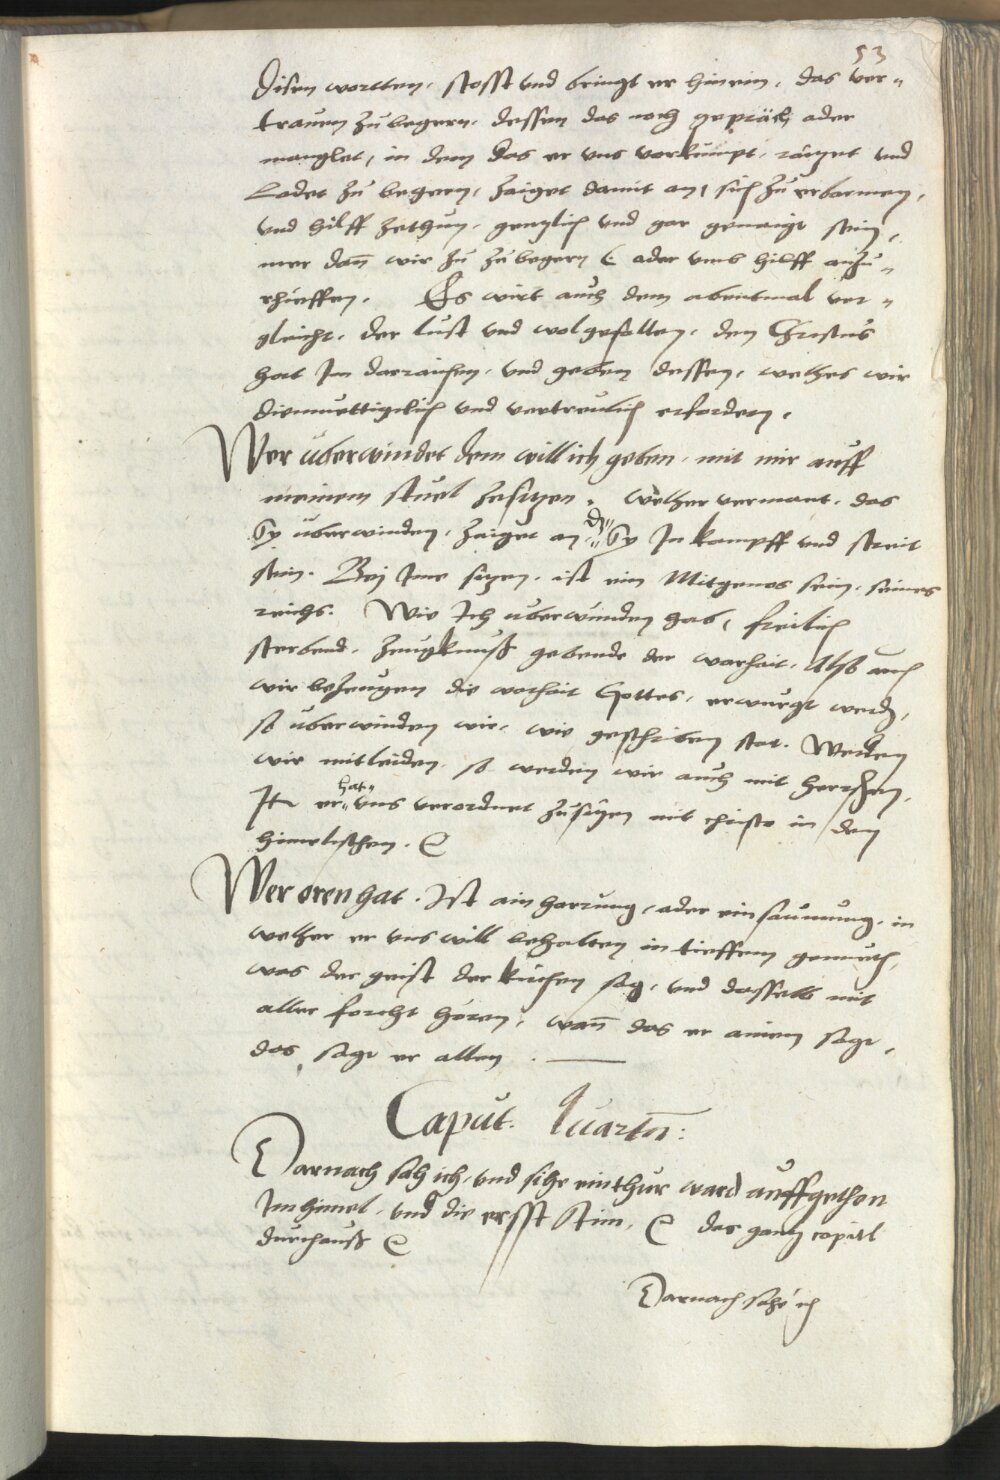 53
disen wortten, stosst und bringt er hinein, das ver„
trauen zu begern, dessen das noch gepräch oder
manglet, in dem das er uns vorkumpt, raitzet und
Ladet zu begern, zaiget damit an, sich zu erbarmen,
und hilff zethun, gentzlich und gar genaigt sein,
mer dan wir zu zu begern &c oder umb hilff anzu„
rhueffen. Es wirt auch dem abentmal ver„
gleicht, der lust und wolgefallen, den Christus
hat Im darraichen, und geben dessen, welches wir
diemuettigklich und vertreulich erfordern.
Wer überwindet dem will ich geben, mit mir auff
meinem stuel zesitzen, welcher vermant, das
Sy uberwinden, zaiget an, dz Sy Jn kampff und streit
sein. Bej Ime sitzen, ist ein Mitgenos sein, seines
reichs. Wie Ich uberwunden hab, freilich
sterbend, zeugknuss gebende der warhait. Also auch
wir bezeugen die warhait Gottes, erwurgt werden,
so uberwinden wir, wie geschriben stat. Werden
wir mitleiden, so werden wir auch mit herrschen,
Itm er hat uns verordnet zusitzen mit christo in den
himelischen. &c
Wer oren hat. Ist ain harrung, oder ein saumung, in
welher er uns will behalten in tieffem gemueth,
was der geist der kirchen sag, und dasselb mit
aller forcht hören, wann das er ainem sagt,
das sagt er allen.
Caput. Quartu:
Darnach sah ich, und sihe ein thur ward auffgethon
Im himel, und die ersst stim, &c das gantz capitl
durchauss &c
Darnach sahe ich